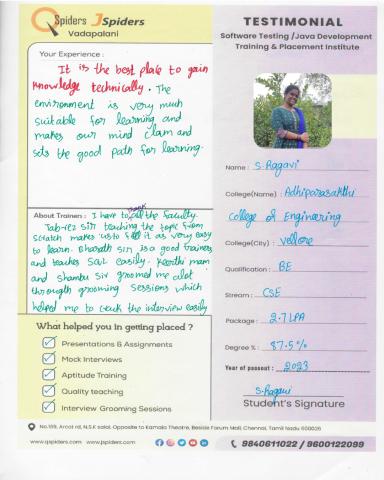 QSpiders JSpiders
Vadapalani
Your Experience :
It is the best place to gain
knowledge technically. The
environment is very much
suitable for learning and
makes our mind clam and
sets the good path for learning.
About Trainers : I have to thank all the faculty.
Tabrez sir teaching the topic from
scratch makes us to feel it as very easy
to learn. Bharath sir is a good trainers
and teaches SQL easily. Keerthi mam
and shambu sir groomed me alot
through grooming sessions which
helped me to crack the interview easily
What helped you in getting placed ?
Presentations & Assignments
Mock Interviews
Aptitude Training
Quality teaching
Interview Grooming Sessions
TESTIMONIAL
Software Testing /Java Development
Training & Placement Institute
Name : S.Ragavi
College(Name) : Adhiparasakthi
College of Engineering
College(City) : Vellore
Qualification : BE
Stream : CSE
Package : 2.7 LPA
Degree % : 87.5%
Year of passout : 2023
S.Ragavi
Student's Signature
No.159, Arcot rd, N.S.K salai, Opposite to Kamala Theatre, Beside Forum Mall, Chennai, Tamil Nadu 600026
www.qspiders.com www.jspiders.com
9840611022 / 9600122099